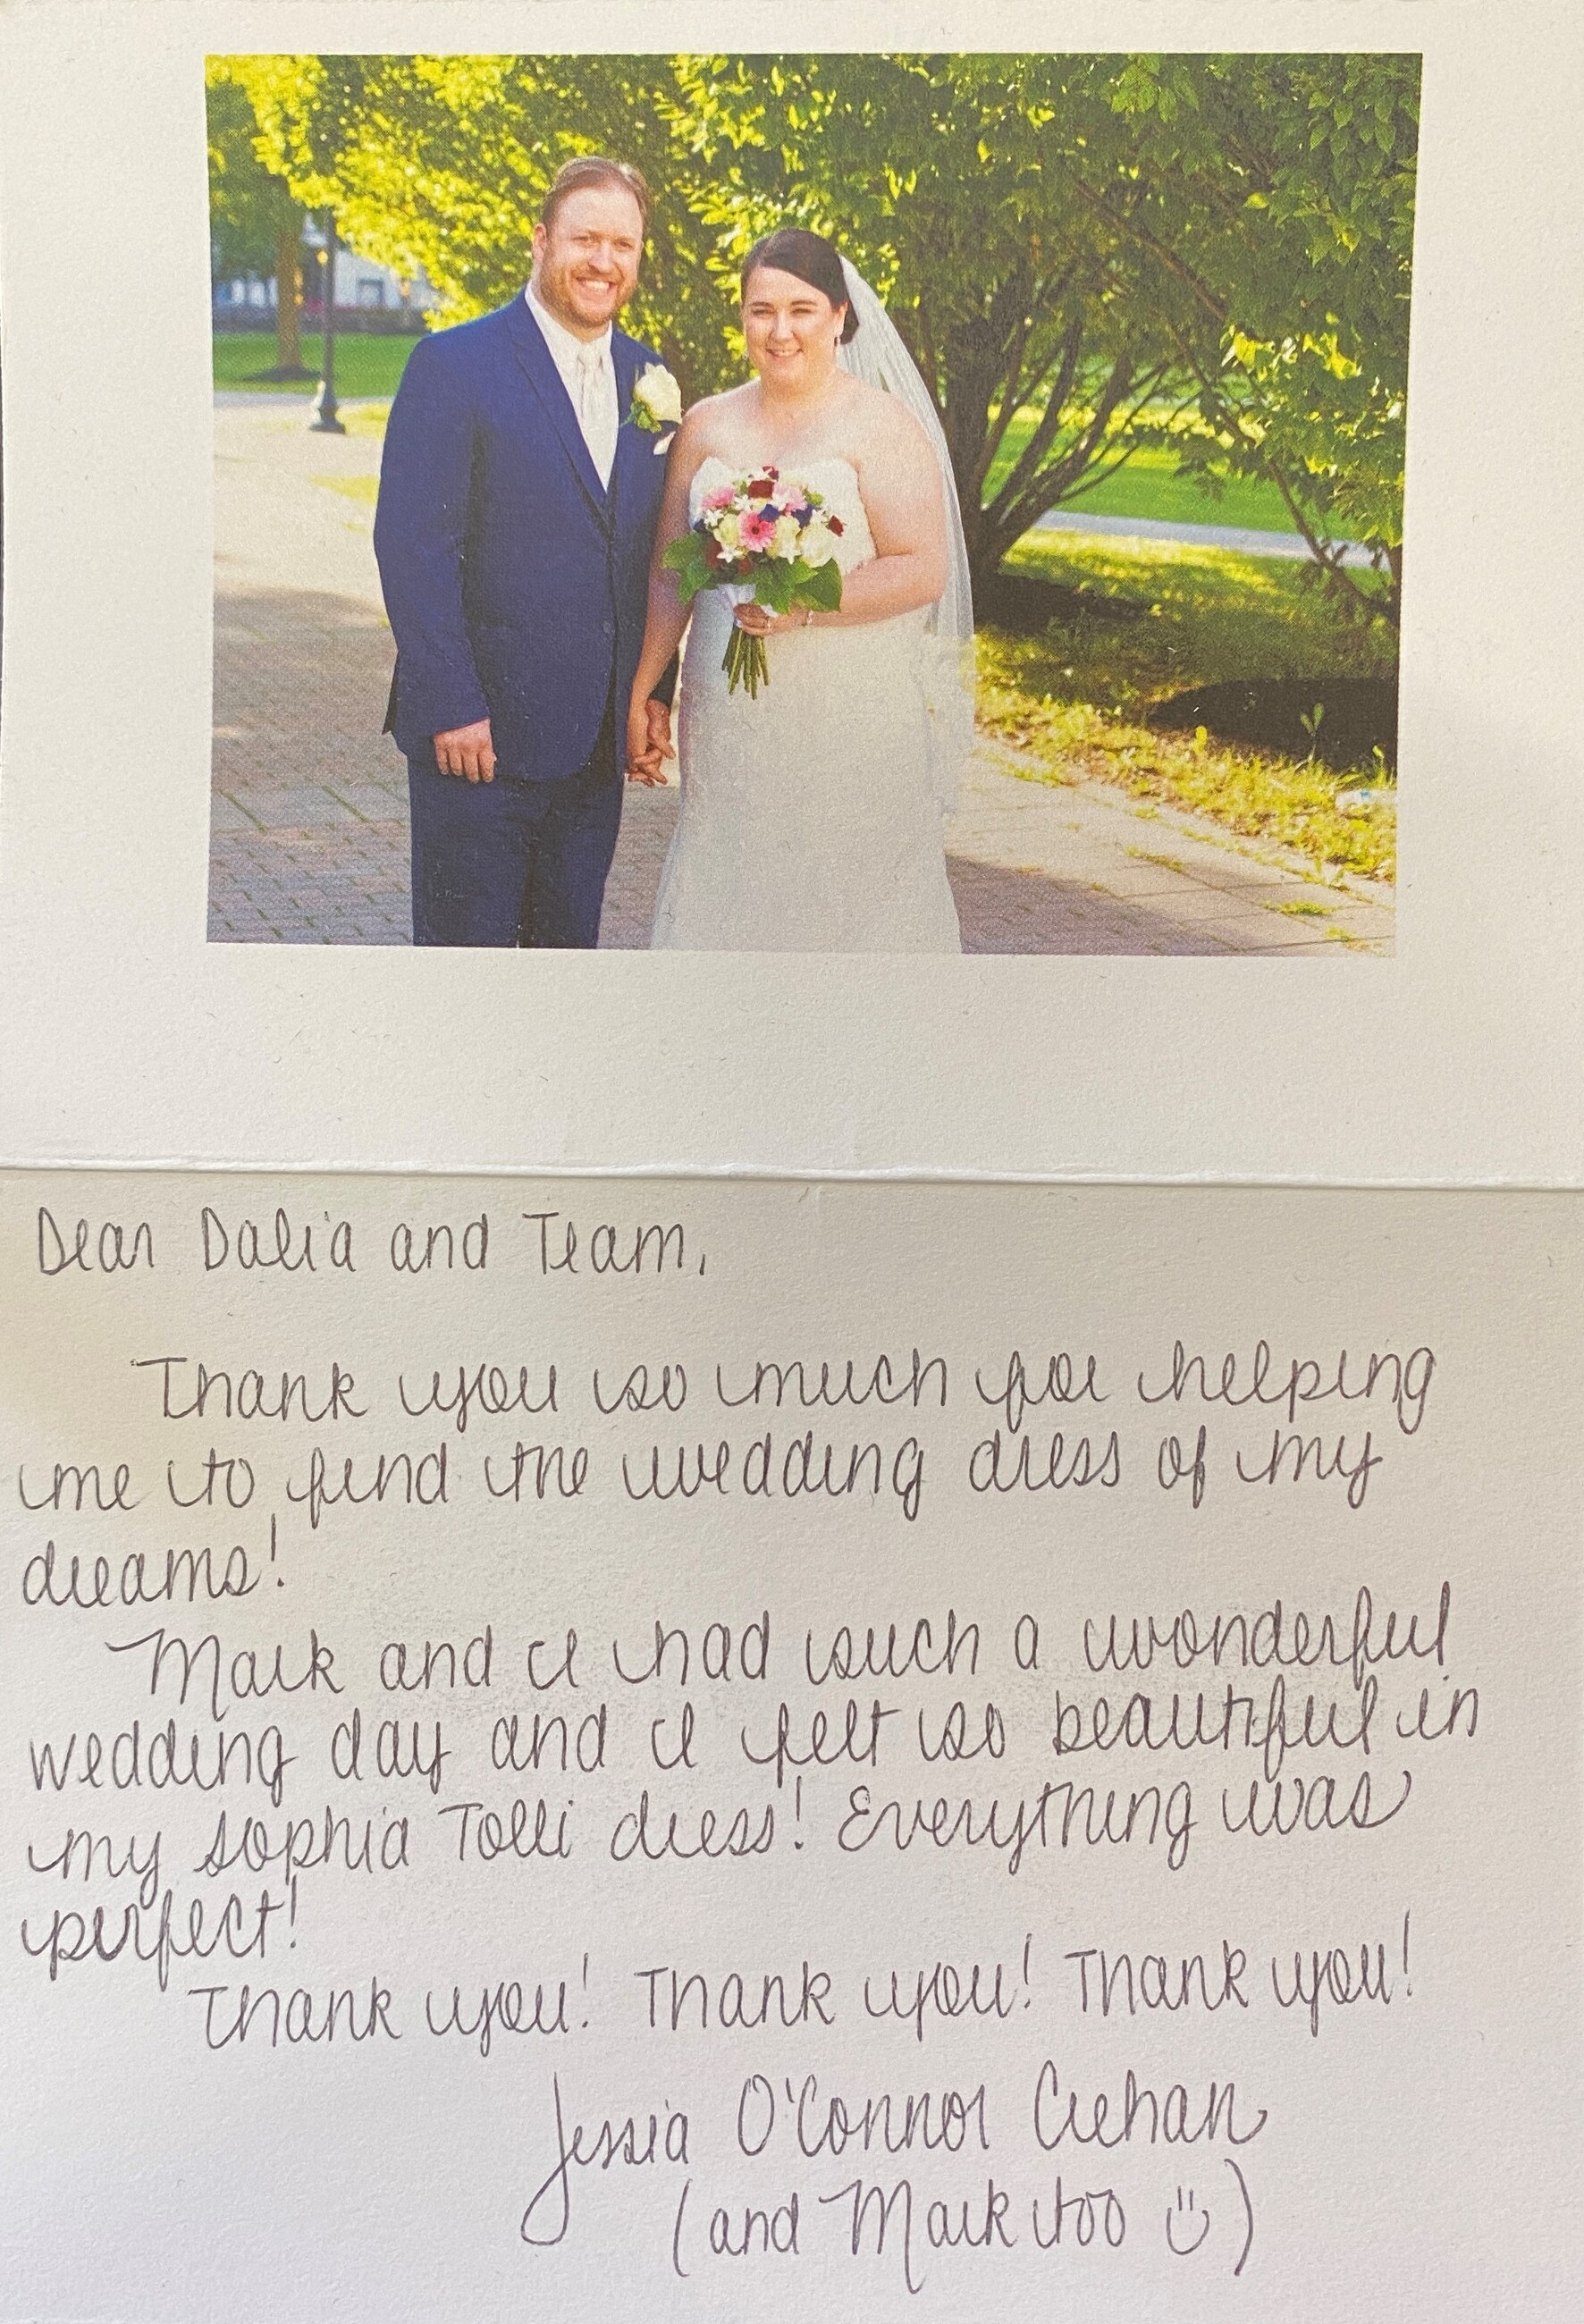 Dear Dalia and Team,
Thank you so much for helping
me to find the wedding dress of my
dreams!
Mark and I had such a wonderful
wedding day and I felt so beautiful in
my Sophia Tolli dress! Everything was
perfect!
Thank you! Thank you! Thank you!
Jessia O'Connor Crehan
(and Mark too :))